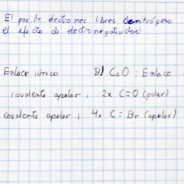 El par de electrones libres
el efecto de electronegatividad
Enlace iónico B) CaO : Enlace
covalente apolar , 2x C=O (polar)
covalente apolar , 4x C-Br (apolar)